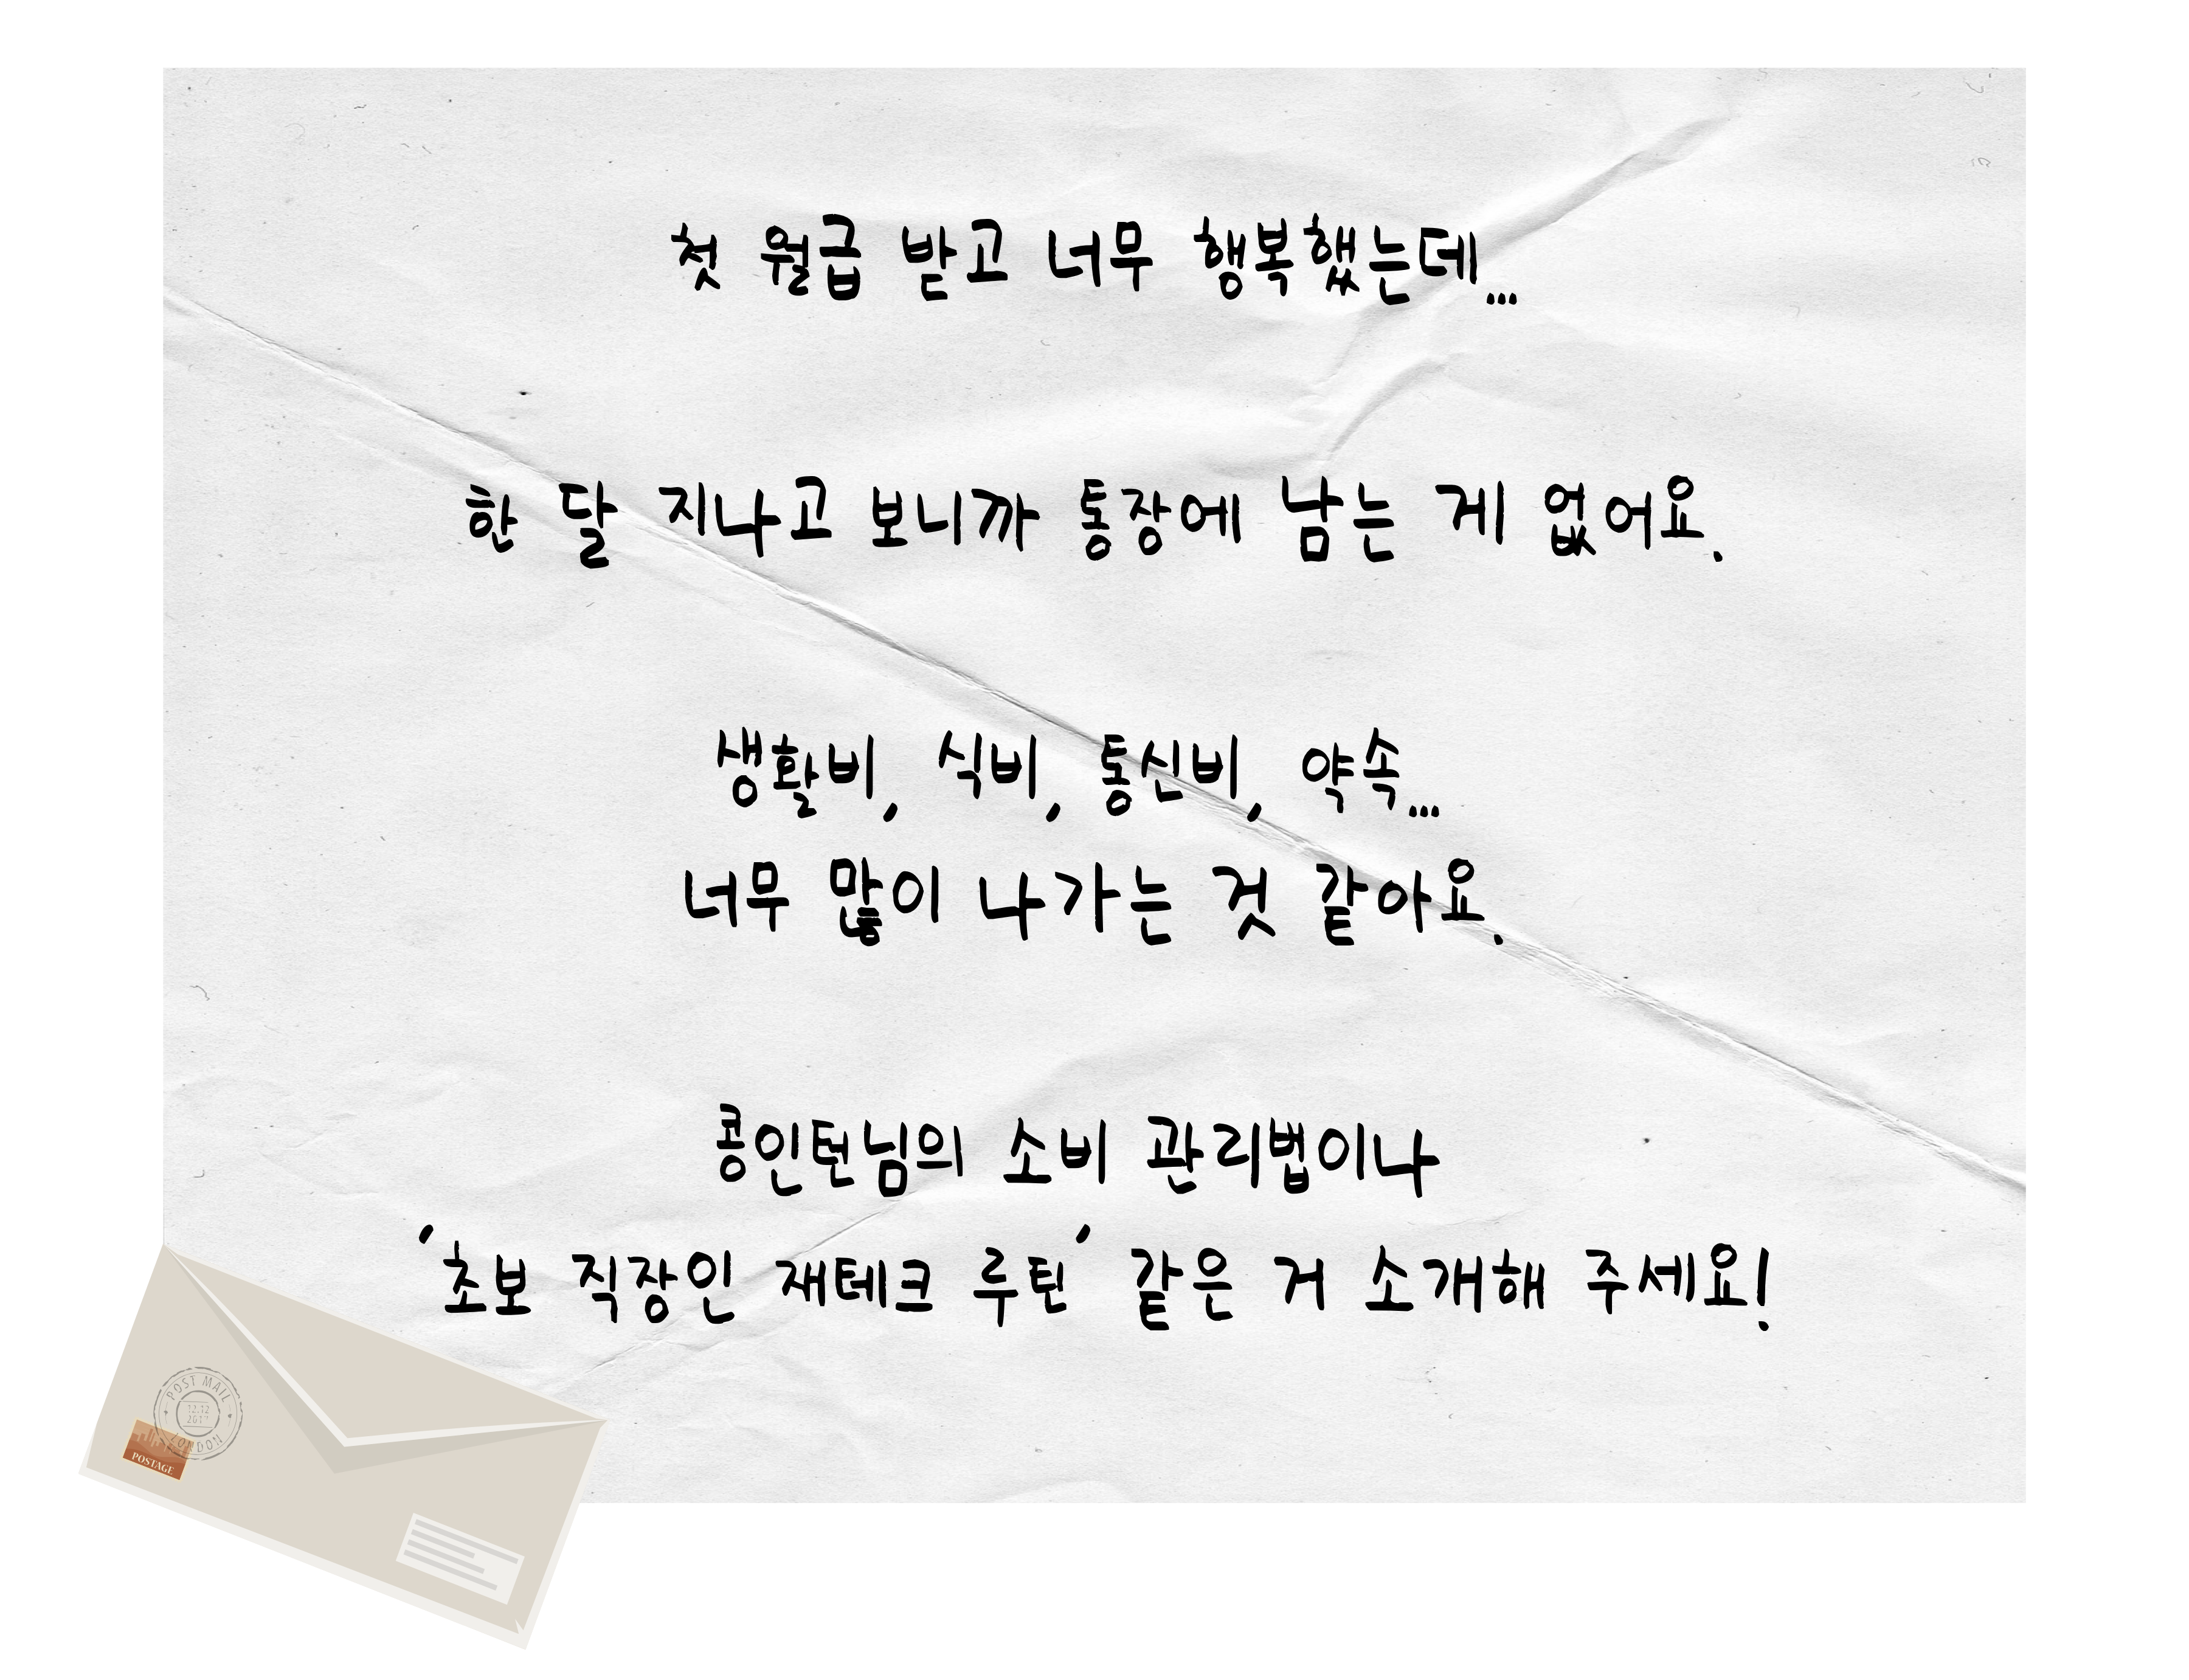 첫 월급 받고 너무 행복했는데...
한 달 지나고 보니까 통장에 남는 게 없어요.
생활비, 식비, 통신비, 약속...
너무 많이 나가는 것 같아요.
콩인턴님의 소비 관리법이나
'초보 직장인 재테크 루틴' 같은 거 소개해 주세요!
POST MAIL
12.12
2017
LONDON
POSTAGE